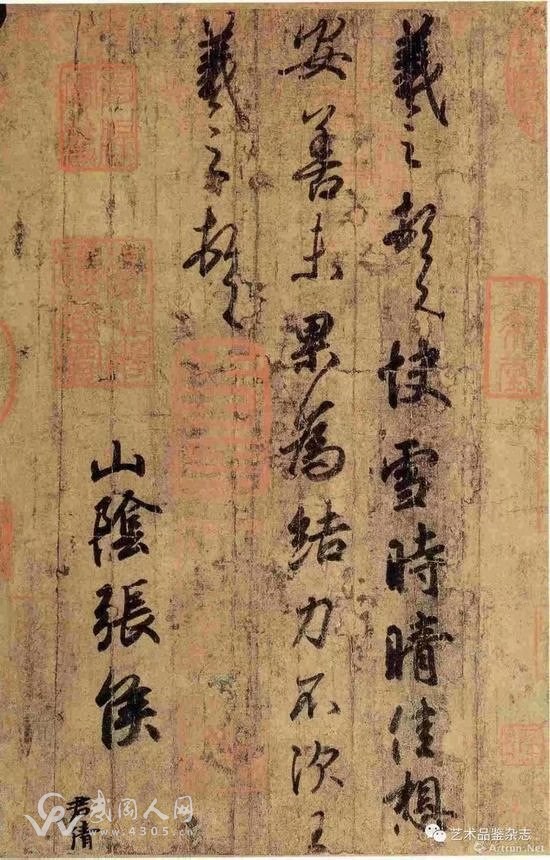 羲之頓首快雪時晴佳想
安善未果為結力不次王
羲之頓首
山陰張侯
君倩
武冈人网
www.4305.cn
艺术品鉴杂志
Artron.Net